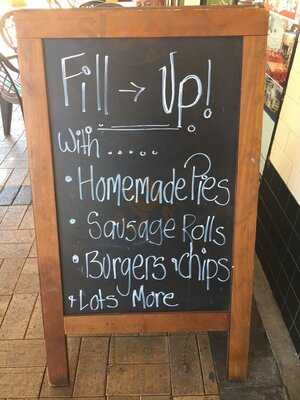 Fill → Up!
With .....
• Homemade Pies
• Sausage Rolls
• Burgers & chips
& Lots More